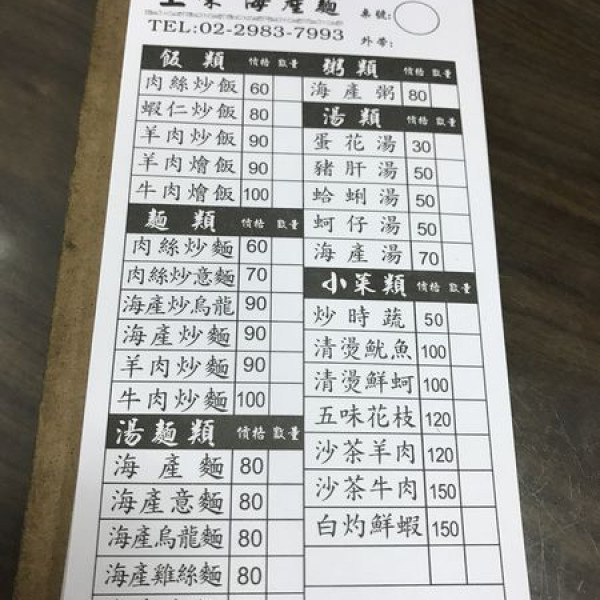 海產麵
桌號:
TEL:02-2983-7993
外帶:
飯類 價格 數量
肉絲炒飯 60
蝦仁炒飯 80
羊肉炒飯 90
羊肉燴飯 90
牛肉燴飯 100
麵類 價格 數量
肉絲炒麵 60
肉絲炒意麵 70
海產炒烏龍 90
海產炒麵 90
羊肉炒麵 90
牛肉炒麵 100
湯麵類 價格 數量
海產麵 80
海產意麵 80
海產烏龍麵 80
海產雞絲麵 80
粥類 價格 數量
海產粥 80
湯類 價格 數量
蛋花湯 30
豬肝湯 50
蛤蜊湯 50
蚵仔湯 50
海產湯 70
小菜類 價格 數量
炒時蔬 50
清燙魷魚 100
清燙鮮蚵 100
五味花枝 120
沙茶羊肉 120
沙茶牛肉 150
白灼鮮蝦 150